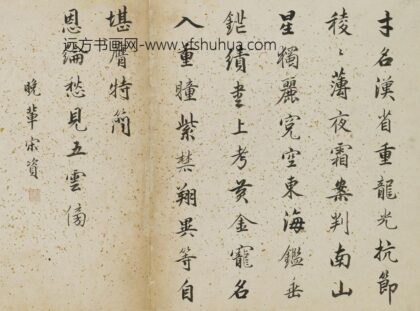 才名漢省重龍光抗節
稜々薄夜霜案判南山
星獨麗霓空東海鑑垂
鋩績書上考黄金寵名
入重瞳紫禁翔異等自
堪膺特簡
恩綸愁見五雲傍
晚輩宋資
远方书画-www.yfshuhua.com